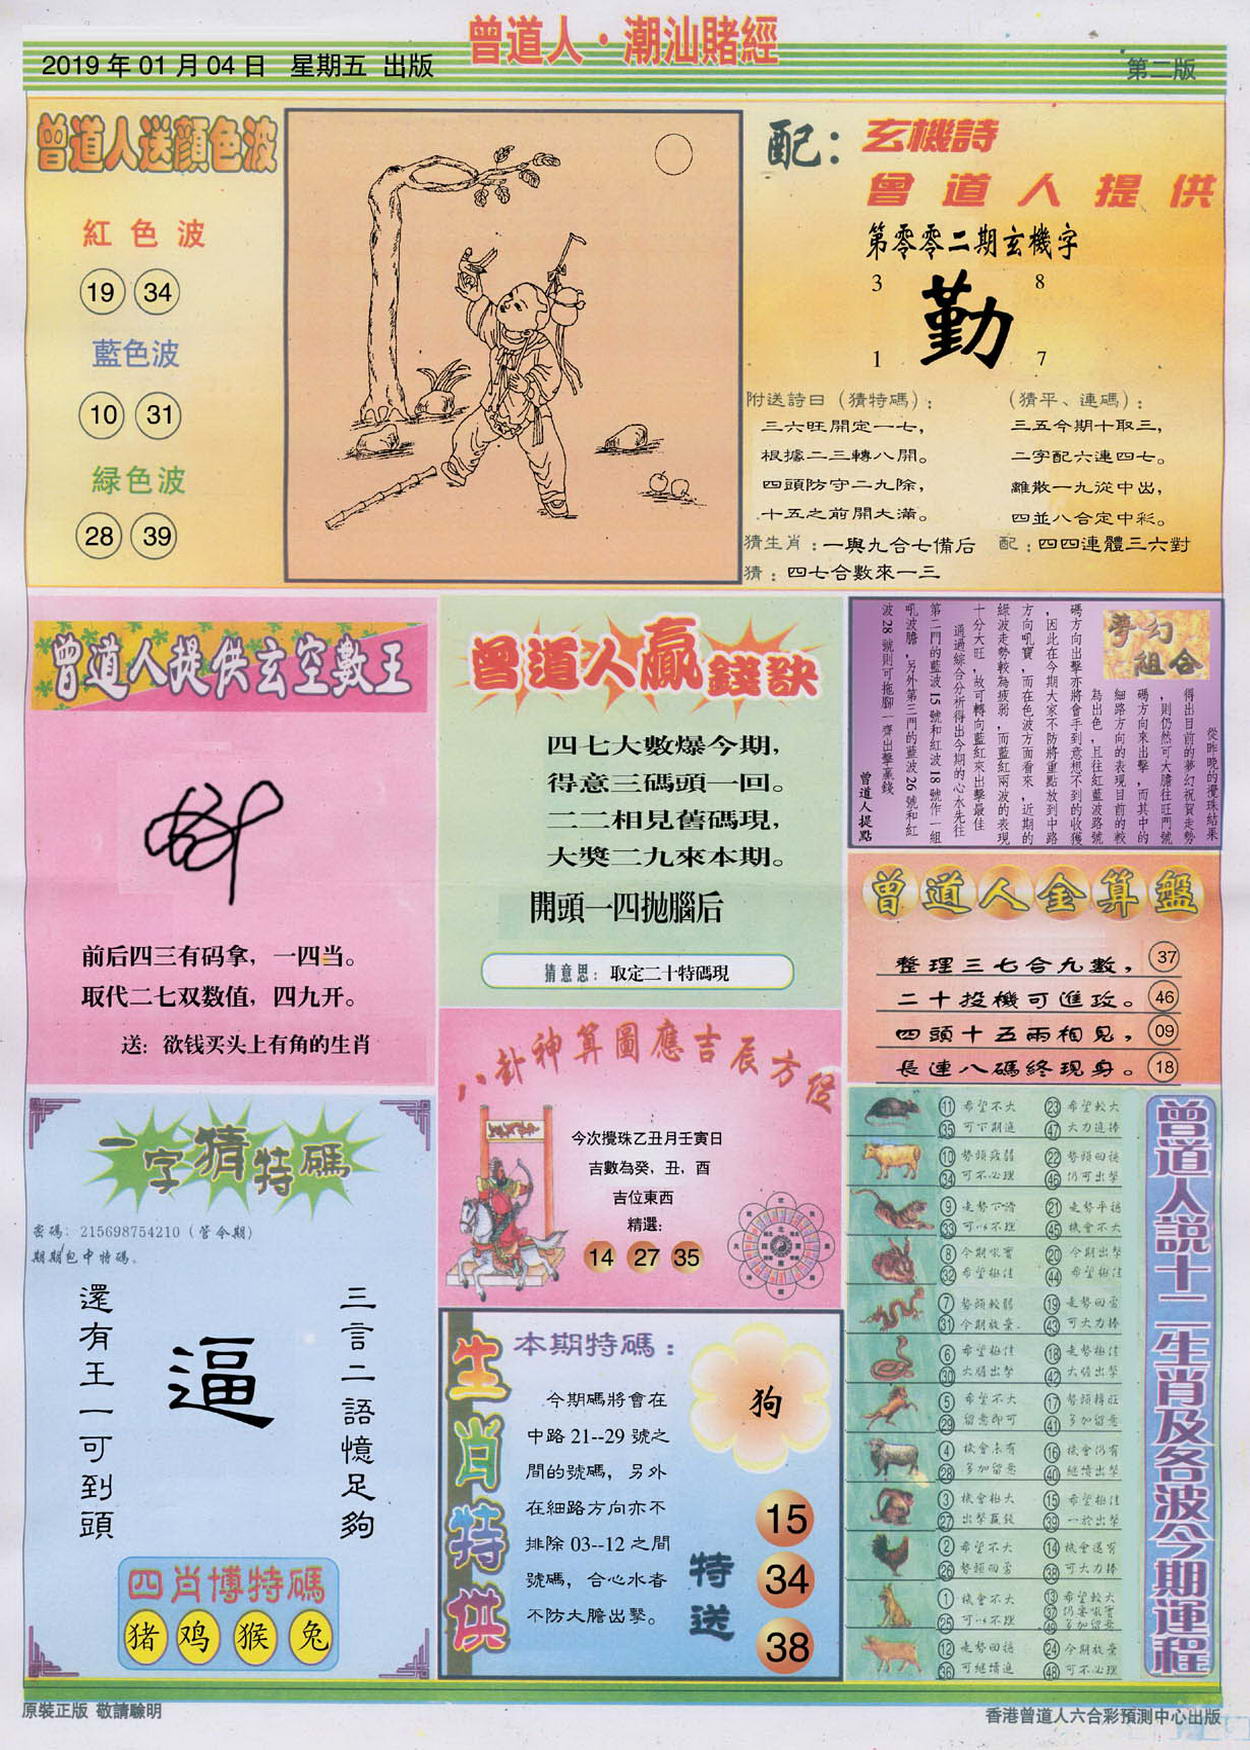 曾道人·潮汕賭經
2019年01月04日 星期五 出版
第二版
曾道人送顏色波
紅色波
19 34
藍色波
10 31
緑色波
28 39
配：玄機詩
曾道人提供
第零零二期玄機字
3 8
勤
1 7
附送詩曰（猜特碼）：
三六旺開定一七，
根據二三轉八開。
四頭防守二九除，
十五之前開大滿。
（猜平、連碼）：
三五今期十取三，
二字配六連四七。
離散一九從中出，
四並八合定中彩。
猜生肖：一與九合七備后
配：四四連體三六對
猜：四七合數來一三
曾道人提供玄空數王
前后四三有码拿，一四当。
取代二七双数值，四九开。
送：欲钱买头上有角的生肖
曾道人贏錢訣
四七大數爆今期，
得意三碼頭一回。
二二相見舊碼現，
大獎二九來本期。
開頭一四拋腦后
猜意思：取定二十特碼現
夢幻
組合
從昨晚的攪珠結果
得出目前的夢幻祝賀走勢
，則仍然可大膽往旺門號
碼方向來出擊，而其中的
細路方向的表現目前的較
為出色，且往紅藍波路號
碼方向出擊亦將會手到意想不到的收獲
，因此在今期大家不防將重點放到中路
方向吼寶，而在色波方面看來，近期的
綠波走勢較為疲弱，而藍紅兩波的表現
十分大旺，故可轉向藍紅來出擊最佳
通過綜合分析得出今期的心水先往
第二門的藍波15號和紅波18號作一組
吼波膽，另外第三門的藍波26號和紅
波28號則可拖腳一齊出擊蠃錢
曾道人提點
曾道人金算盤
整理三七合九數， 37
二十投機可進攻。 46
四頭十五兩相見， 09
長連八碼終現身。 18
八卦神算圖應吉辰方位
今次攪珠乙丑月壬寅日
吉數為癸，丑，酉
吉位東西
精選：
14 27 35
一字猜特碼
密碼：215698754210（管令期）
期期包中特碼。
三言二語憶足夠
逼
還有王一可到頭
四肖博特碼
猪 鸡 猴 兔
生肖特供
本期特碼：
今期碼將會在
中路21--29號之
間的號碼，另外
在細路方向亦不
排除03--12之間
號碼，合心水者
不防大膽出擊。
狗
特送
15
34
38
曾道人説十二生肖及各波今期運程
11 希望不大 23 希望較大
35 可下期追 47 大力追捧
10 勢頭疲弱 22 勢頭回穩
34 可不必理 46 仍可出擊
9 走勢下滑 21 走勢平穩
33 可以不理 45 機會不大
8 今期吼寶 20 今期出擊
32 希望極佳 44 希望極佳
7 勢頭較弱 19 走勢回露
31 今期放棄 43 可大力捧
6 希望極佳 18 走勢極佳
30 大膽出擊 42 大膽出擊
5 希望不大 17 勢頭轉旺
29 留意即可 41 多加留意
4 機會未有 16 機會仍有
28 多加留意 40 繼續出擊
3 機會極大 15 希望極佳
27 出擊蠃錢 39 一於出擊
2 希望不大 14 機會還有
26 勢頭回露 38 可大力捧
1 機會不大 13 希望較大
25 可以不理 37 仍要吼寶
49 多加留意
12 走勢回穩 24 今期放棄
36 可繼續追 48 可不必理
原裝正版 敬請驗明
香港曾道人六合彩預測中心出版